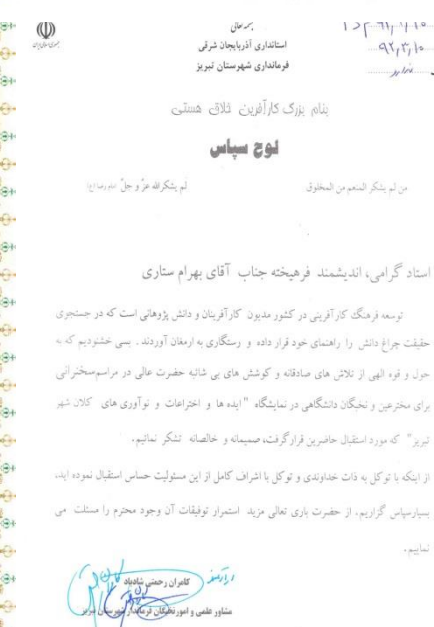 بسمه تعالی
استانداری آذربایجان شرقی
فرمانداری شهرستان تبریز
جمهوری اسلامی ایران
۹۲,۳,۱۰
بنام بزرگ کارآفرین خلاق هستی
لوح سپاس
من لم یشکر المنعم من المخلوق لم یشکرالله عزّ و جلّ امام رضا (ع)
استاد گرامی، اندیشمند فرهیخته جناب آقای بهرام ستاری
توسعه فرهنگ کارآفرینی در کشور مدیون کارآفرینان و دانش پژوهانی است که در جستجوی
حقیقت چراغ دانش را راهنمای خود قرار داده و رستگاری به ارمغان آوردند. بسی خشنودیم که به
حول و قوه الهی از تلاش های صادقانه و کوشش های بی شائبه حضرت عالی در مراسم سخنرانی
برای مخترعین و نخبگان دانشگاهی در نمایشگاه "ایده ها و اختراعات و نوآوری های کلان شهر
تبریز" که مورد استقبال حاضرین قرارگرفت، صمیمانه و خالصانه تشکر نمائیم.
از اینکه با توکل به ذات خداوندی و توکل با اشراف کامل از این مسئولیت حساس استقبال نموده اید،
بسیارسپاس گزاریم. از حضرت باری تعالی مزید استمرار توفیقات آن وجود محترم را مسئلت می
نماییم.
کامران رحمتی شادباد
مشاور علمی و امورنخبگان فرماندار شهرستان تبریز